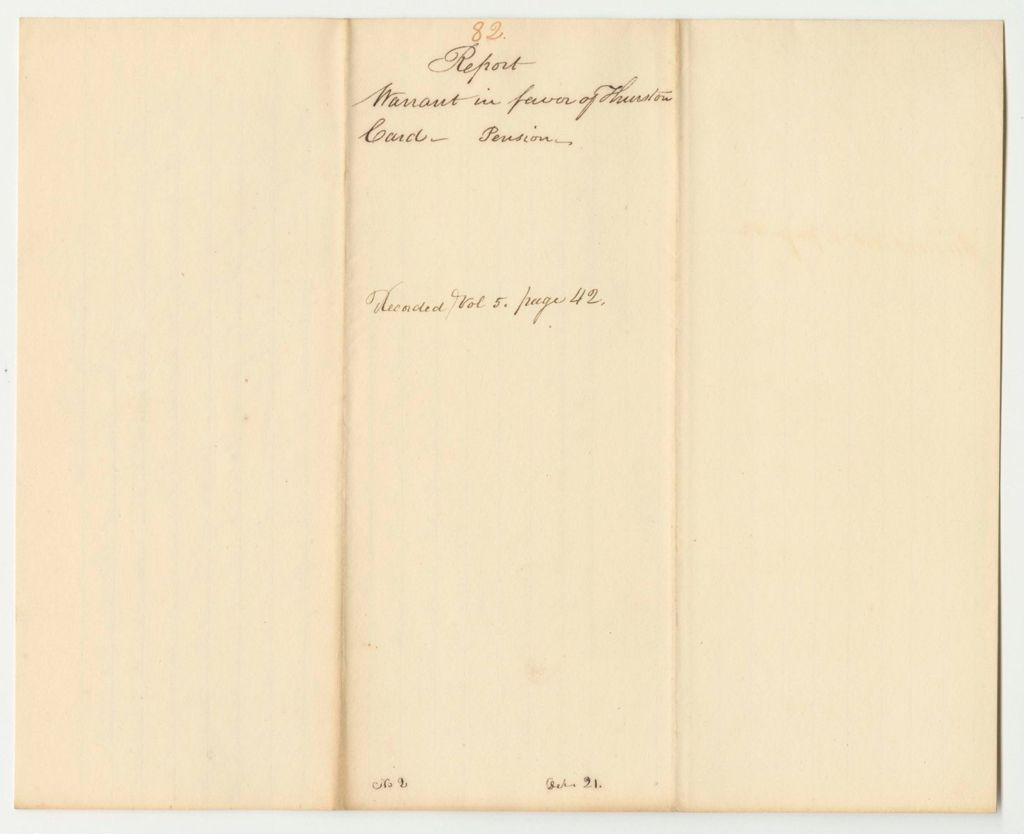 82.
Report
Warrant in favor of Thurston
Card – Pension –
Recorded Vol 5. page 42.
No 2
21.